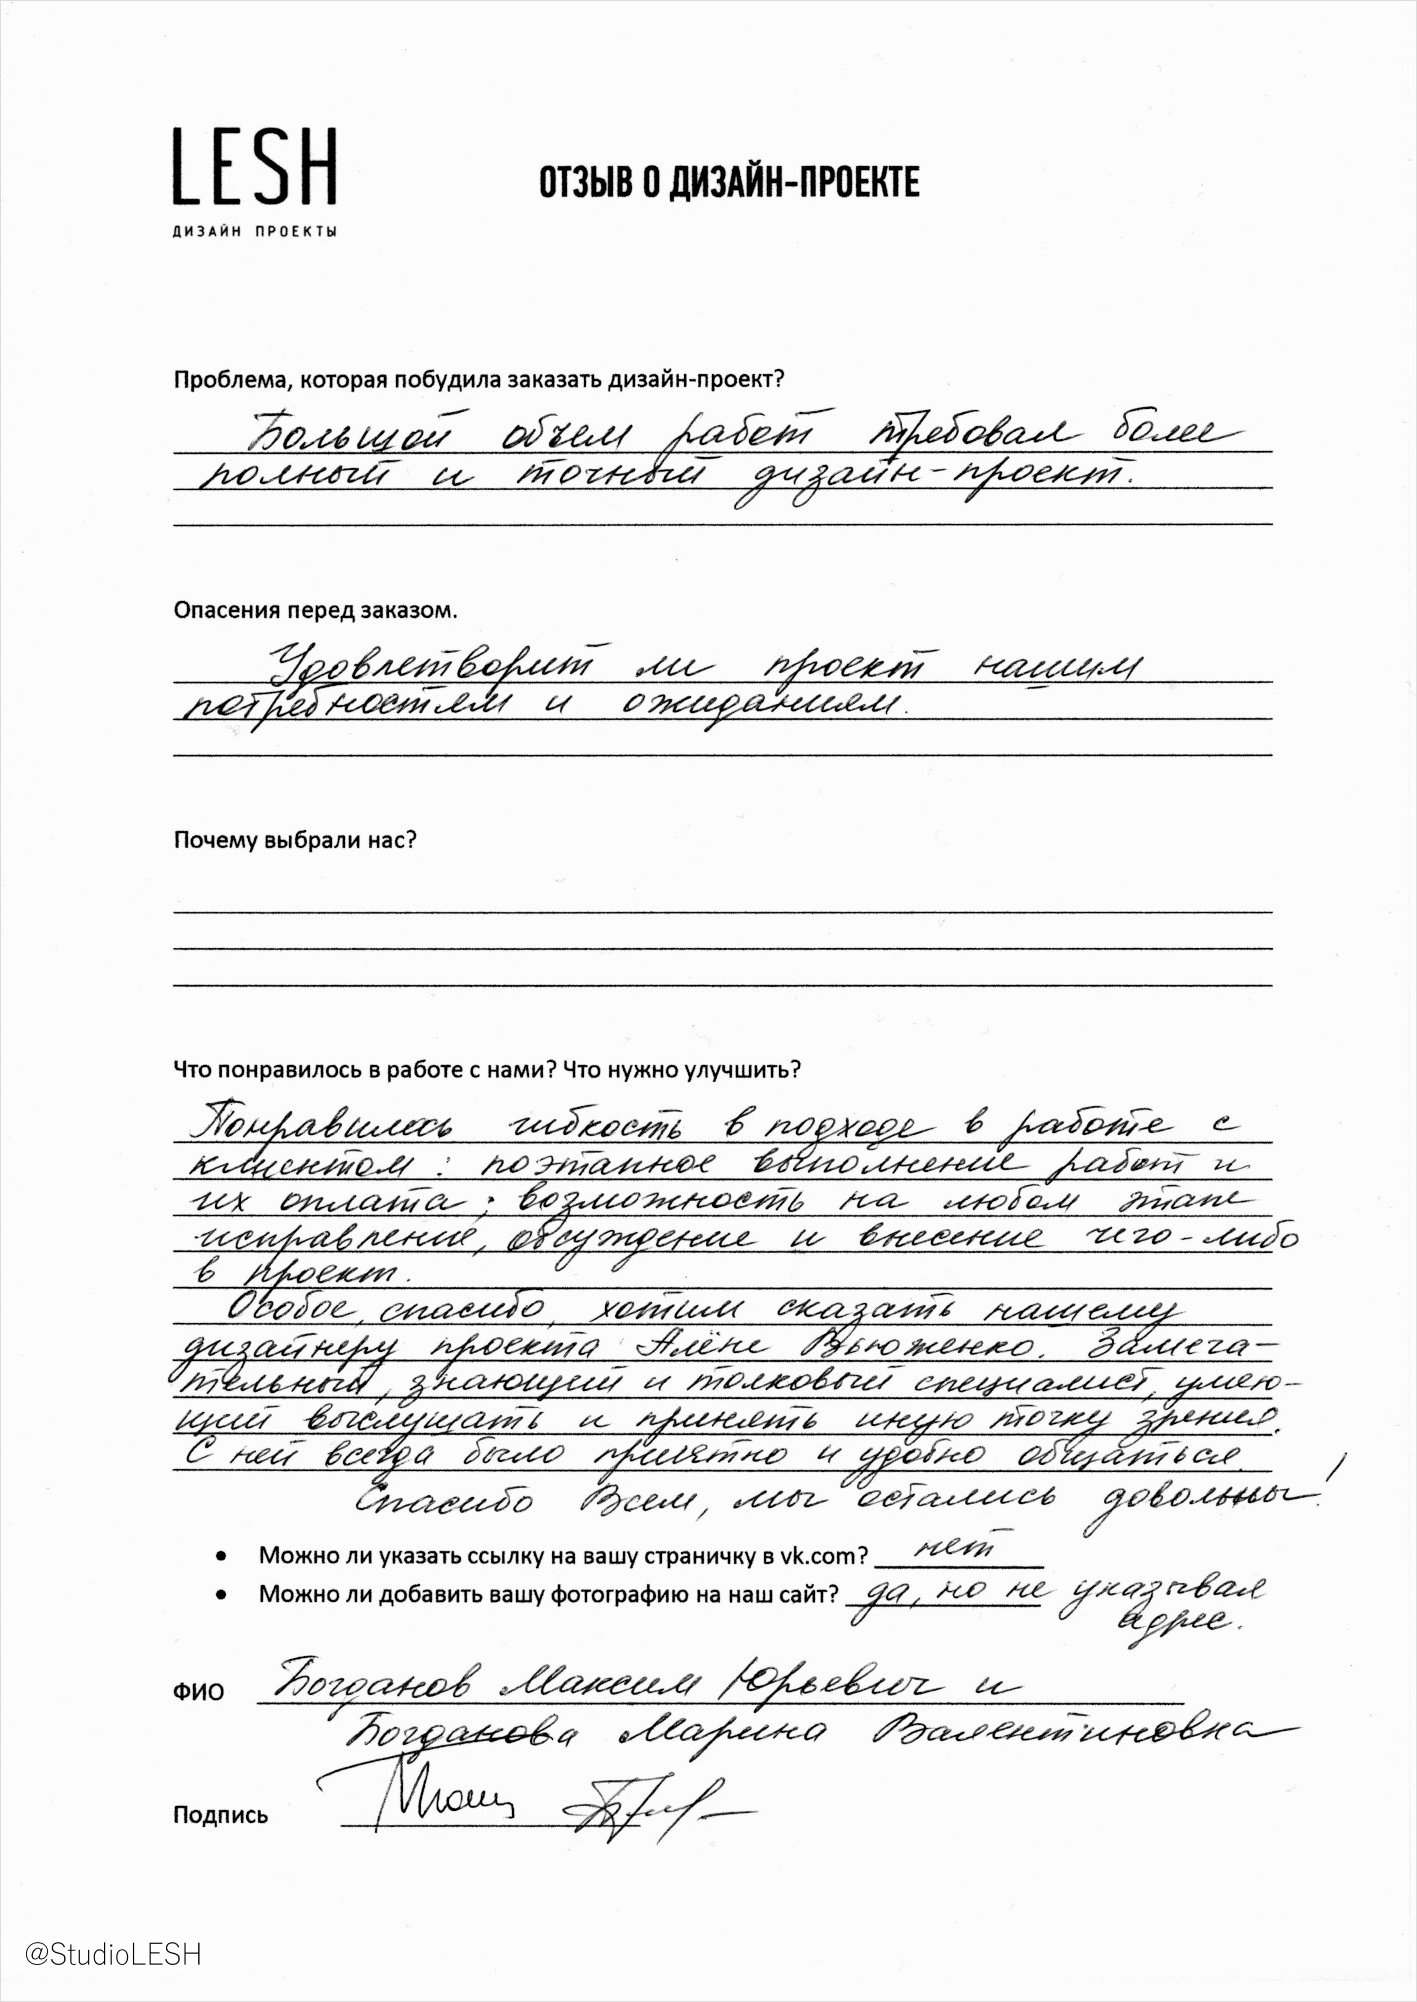 LESH
ДИЗАЙН ПРОЕКТЫ
ОТЗЫВ О ДИЗАЙН-ПРОЕКТЕ
Проблема, которая побудила заказать дизайн-проект?
Большой объем работ требовал более
полный и точный дизайн-проект.
Опасения перед заказом.
Удовлетворит ли проект нашим
потребностям и ожиданиям.
Почему выбрали нас?
Что понравилось в работе с нами? Что нужно улучшить?
Понравилась гибкость в подходе в работе с
клиентом: поэтапное выполнение работ и
их оплата; возможность на любом этапе
исправление, обсуждение и внесение чего-либо
в проект.
Особое, спасибо, хотим сказать нашему
дизайнеру проекта Алёне Вьюженко. Замеча-
тельный, знающий и толковый специалист, умею-
щий выслушать и принять иную точку зрения.
С ней всегда было приятно и удобно общаться.
Спасибо Всем, мы остались довольны!
• Можно ли указать ссылку на вашу страничку в vk.com? нет
• Можно ли добавить вашу фотографию на наш сайт? да, но не указывая
адрес.
ФИО Богданов Максим Юрьевич и
Богданова Марина Валентиновна
Подпись
@StudioLESH